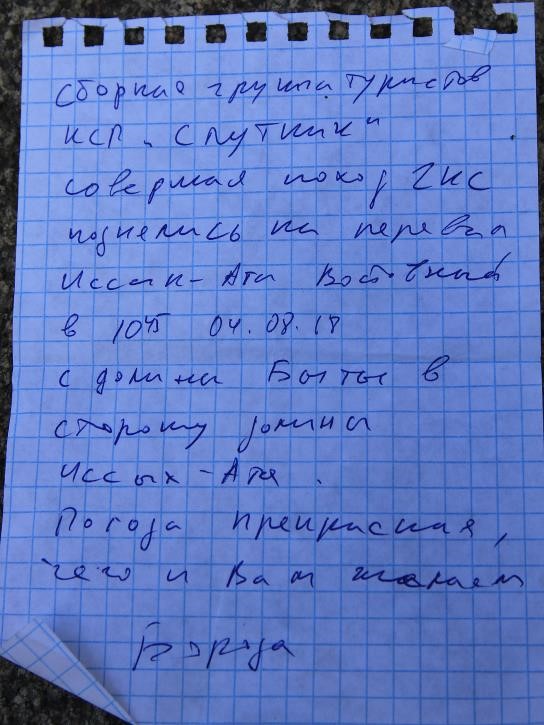 сборная группа туристов
КСП „Спутник“
совершая поход 2 кс
поднялись на перевал
Иссык-Ата Восточный
в 10 45 04.08.18
с долины Бытты в
сторону долины
Иссых-Ата.
Погода прекрасная,
чего и Вам желаем